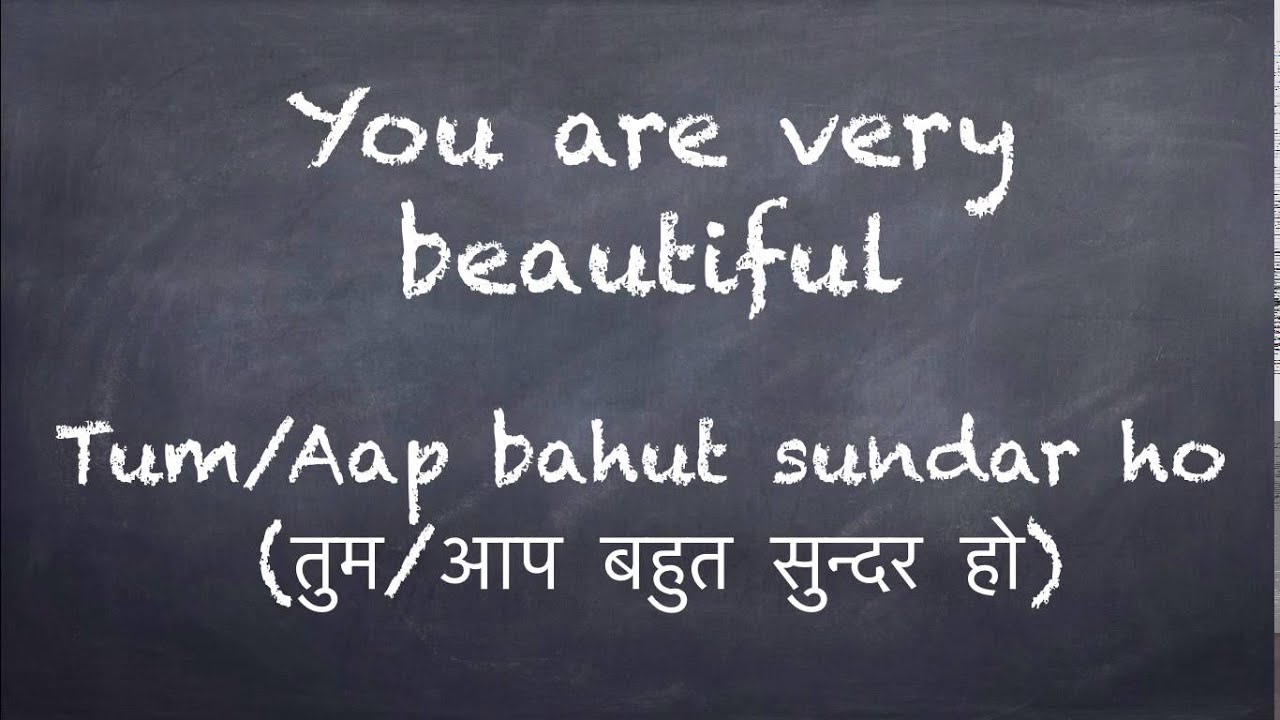 You are very
beautiful
Tum/Aap bahut sundar ho
(तुम/आप बहुत सुन्दर हो)